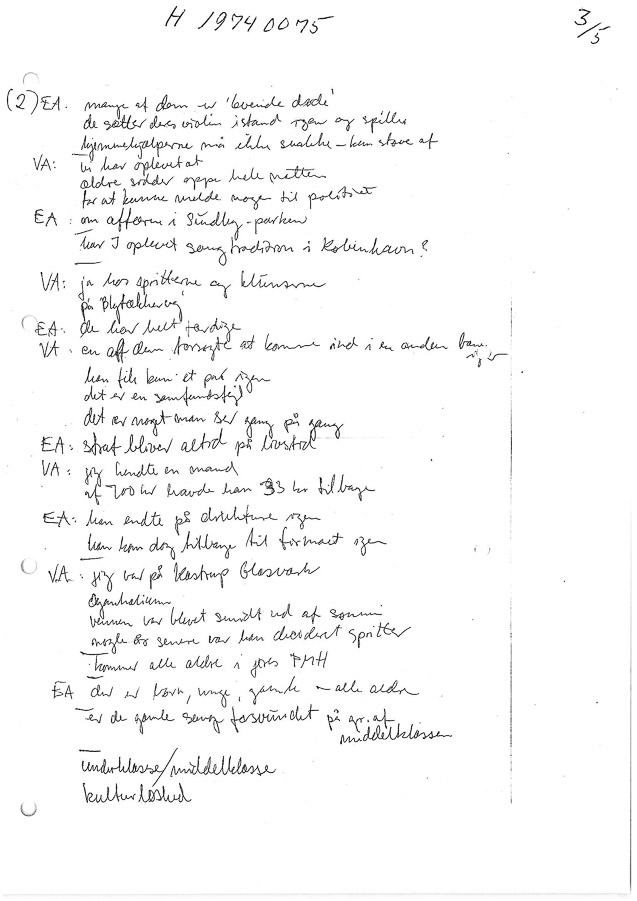 H 19740075
3/5
(2) EA: mange af dem er 'levende døde'
de sætter deres violin istand igen og spiller
hjemmehjælperne må ikke snakke - kun støve af
VA: vi har oplevet at
ældre sidder oppe hele natten
for at kunne melde noget til politiet
EA: om affæren i Sundby-parken
har I oplevet sangtradition i København?
VA: ja hos spritterne og klunserne
på 'Blytækkervej'
EA: de har helt færdige
VA: en af dem forsøgte at komme ind i en anden bane
han fik kun et par igen
det er en samfundsfejl
det er noget man ser gang på gang
EA: straf bliver altid på livstid
VA: jeg kendte en mand
af 700 kr havde han 33 kr tilbage
EA: han endte på drikkture igen
han kom dog tilbage til format igen
VA: jeg var på Kastrup Glasværk
vennen var blevet smidt ud af
nogle år senere var han decideret spritter
kommer alle aldre i jeres FMH
EA der er børn, unge, gamle - alle aldre
er de gamle sange forsvundet på gr. af
middelklassen
underklasse/middelklasse
kulturløshed